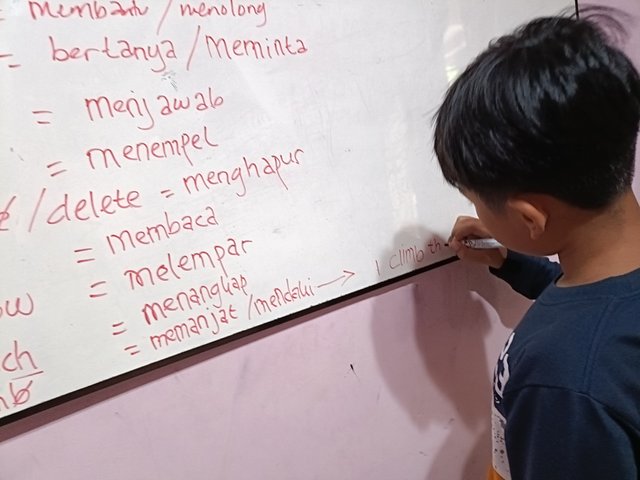 = membantu / menolong
= bertanya / Meminta
= menjawab
= menempel
/ delete = menghapur
= membaca
= melempar
ow = menangkap
ch = memanjat / mendaki → I climb th
mb